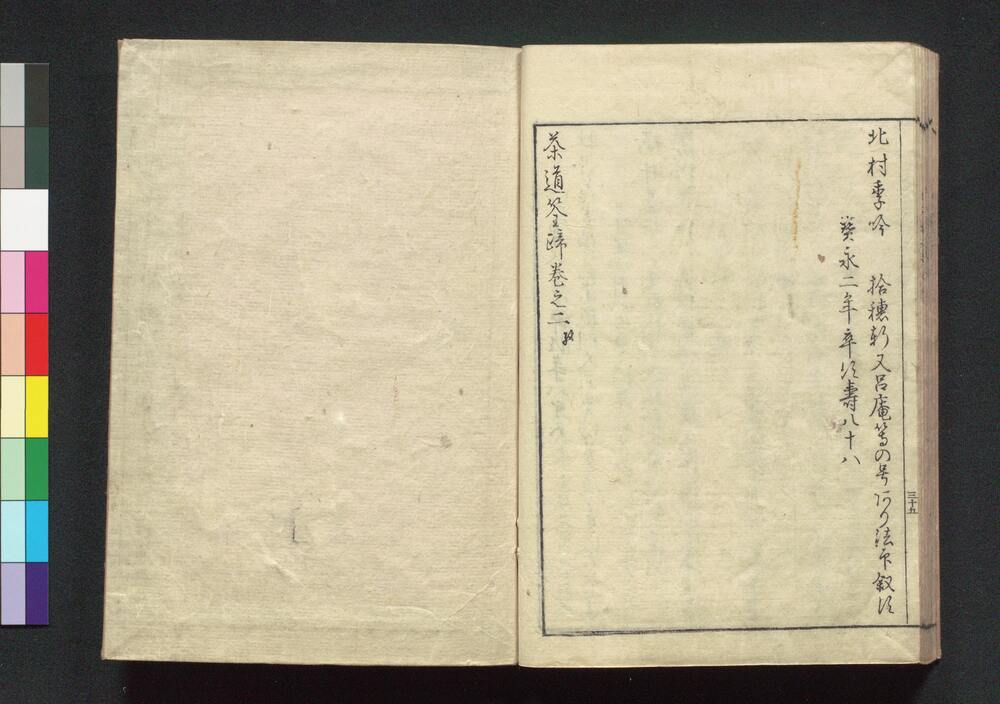 北村季吟　拾穂軒又呂庵等の号アリ法印叙ス
宝永二年卒ス壽八十八
茶道筌蹄巻之二終
三十五